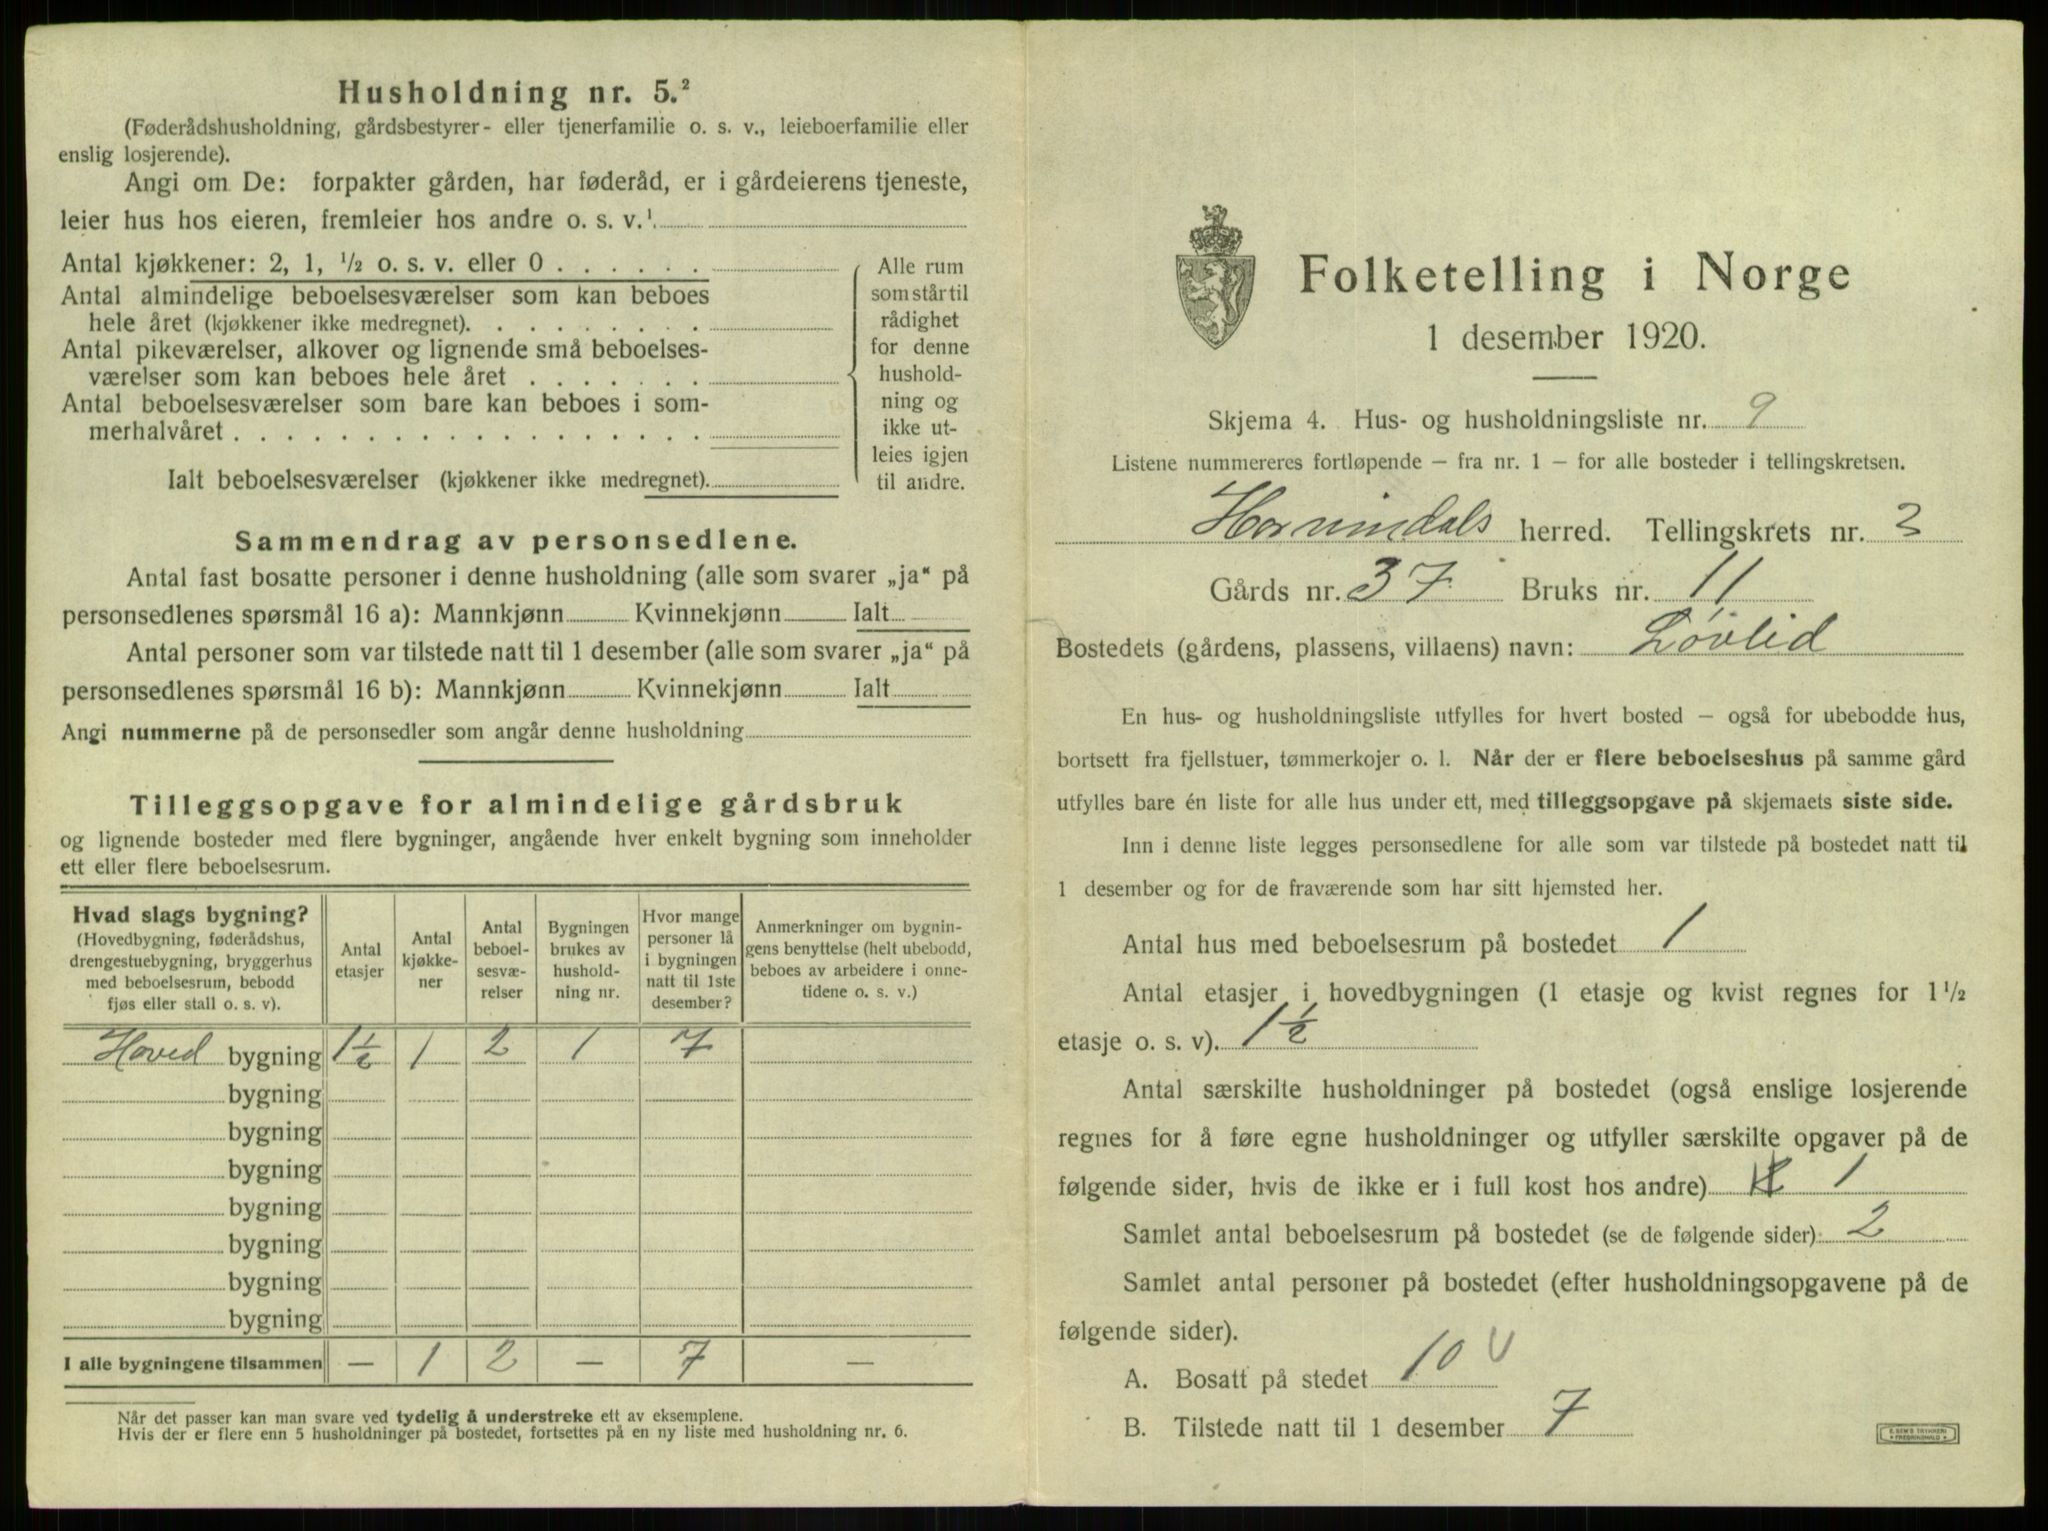 Husholdning nr. 5.²
(Føderådshusholdning, gårdsbestyrer- eller tjenerfamilie o. s. v., leieboerfamilie eller
enslig losjerende).
Angi om De: forpakter gården, har føderåd, er i gårdeierens tjeneste,
leier hus hos eieren, fremleier hos andre o. s. v.¹
Antal kjøkkener: 2, 1, ½ o. s. v. eller 0 . . . . . .
Antal almindelige beboelsesværelser som kan beboes
hele året (kjøkkener ikke medregnet). . . . . . . . .
Antal pikeværelser, alkover og lignende små beboelses-
værelser som kan beboes hele året . . . . . . .
Antal beboelsesværelser som bare kan beboes i som-
merhalvåret . . . . . . . . . . . . . . . . . .
Ialt beboelsesværelser (kjøkkener ikke medregnet).
Alle rum
som står til
rådighet
for denne
hushold-
ning og
ikke ut-
leies igjen
til andre.
Sammendrag av personsedlene.
Antal fast bosatte personer i denne husholdning (alle som svarer „ja“ på
personsedlenes spørsmål 16 a): Mannkjønn Kvinnekjønn Ialt
Antal personer som var tilstede natt til 1 desember (alle som svarer „ja“ på
personsedlenes spørsmål 16 b): Mannkjønn Kvinnekjønn Ialt
Angi nummerne på de personsedler som angår denne husholdning
Tilleggsopgave for almindelige gårdsbruk
og lignende bosteder med flere bygninger, angående hver enkelt bygning som inneholder
ett eller flere beboelsesrum.
Hvad slags bygning?
(Hovedbygning, føderådshus,
drengestuebygning, bryggerhus
med beboelsesrum, bebodd
fjøs eller stall o. s. v).
Antal
etasjer
Antal
kjøkke-
ner
Antal
beboel-
sesvæ-
relser
Bygningen
brukes av
hushold-
ning nr.
Hvor mange
personer lå
i bygningen
natt til 1ste
desember?
Anmerkninger om bygnin-
gens benyttelse (helt ubebodd,
beboes av arbeidere i onne-
tidene o. s. v.)
Hoved bygning 1½ 1 2 1 7
bygning
bygning
bygning
bygning
bygning
bygning
bygning
I alle bygningene tilsammen — 1 2 — 7 —
Når det passer kan man svare ved tydelig å understreke ett av eksemplene.
Hvis der er flere enn 5 husholdninger på bostedet, fortsettes på en ny liste med husholdning nr. 6.
Folketelling i Norge
1 desember 1920.
Skjema 4. Hus- og husholdningsliste nr. 9
Listene nummereres fortløpende – fra nr. 1 – for alle bosteder i tellingskretsen.
Hornindals herred. Tellingskrets nr. 3
Gårds nr. 37 Bruks nr. 11
Bostedets (gårdens, plassens, villaens) navn: Løvlid
En hus- og husholdningsliste utfylles for hvert bosted – også for ubebodde hus,
bortsett fra fjellstuer, tømmerkojer o. l. Når der er flere beboelseshus på samme gård
utfylles bare én liste for alle hus under ett, med tilleggsopgave på skjemaets siste side.
Inn i denne liste legges personsedlene for alle som var tilstede på bostedet natt til
1 desember og for de fraværende som har sitt hjemsted her.
Antal hus med beboelsesrum på bostedet 1
Antal etasjer i hovedbygningen (1 etasje og kvist regnes for 1½
etasje o. s. v). 1½
Antal særskilte husholdninger på bostedet (også enslige losjerende
regnes for å føre egne husholdninger og utfyller særskilte opgaver på de
følgende sider, hvis de ikke er i full kost hos andre) 1
Samlet antal beboelsesrum på bostedet (se de følgende sider): 2
Samlet antal personer på bostedet (efter husholdningsopgavene på de
følgende sider).
A. Bosatt på stedet 10
B. Tilstede natt til 1 desember 7